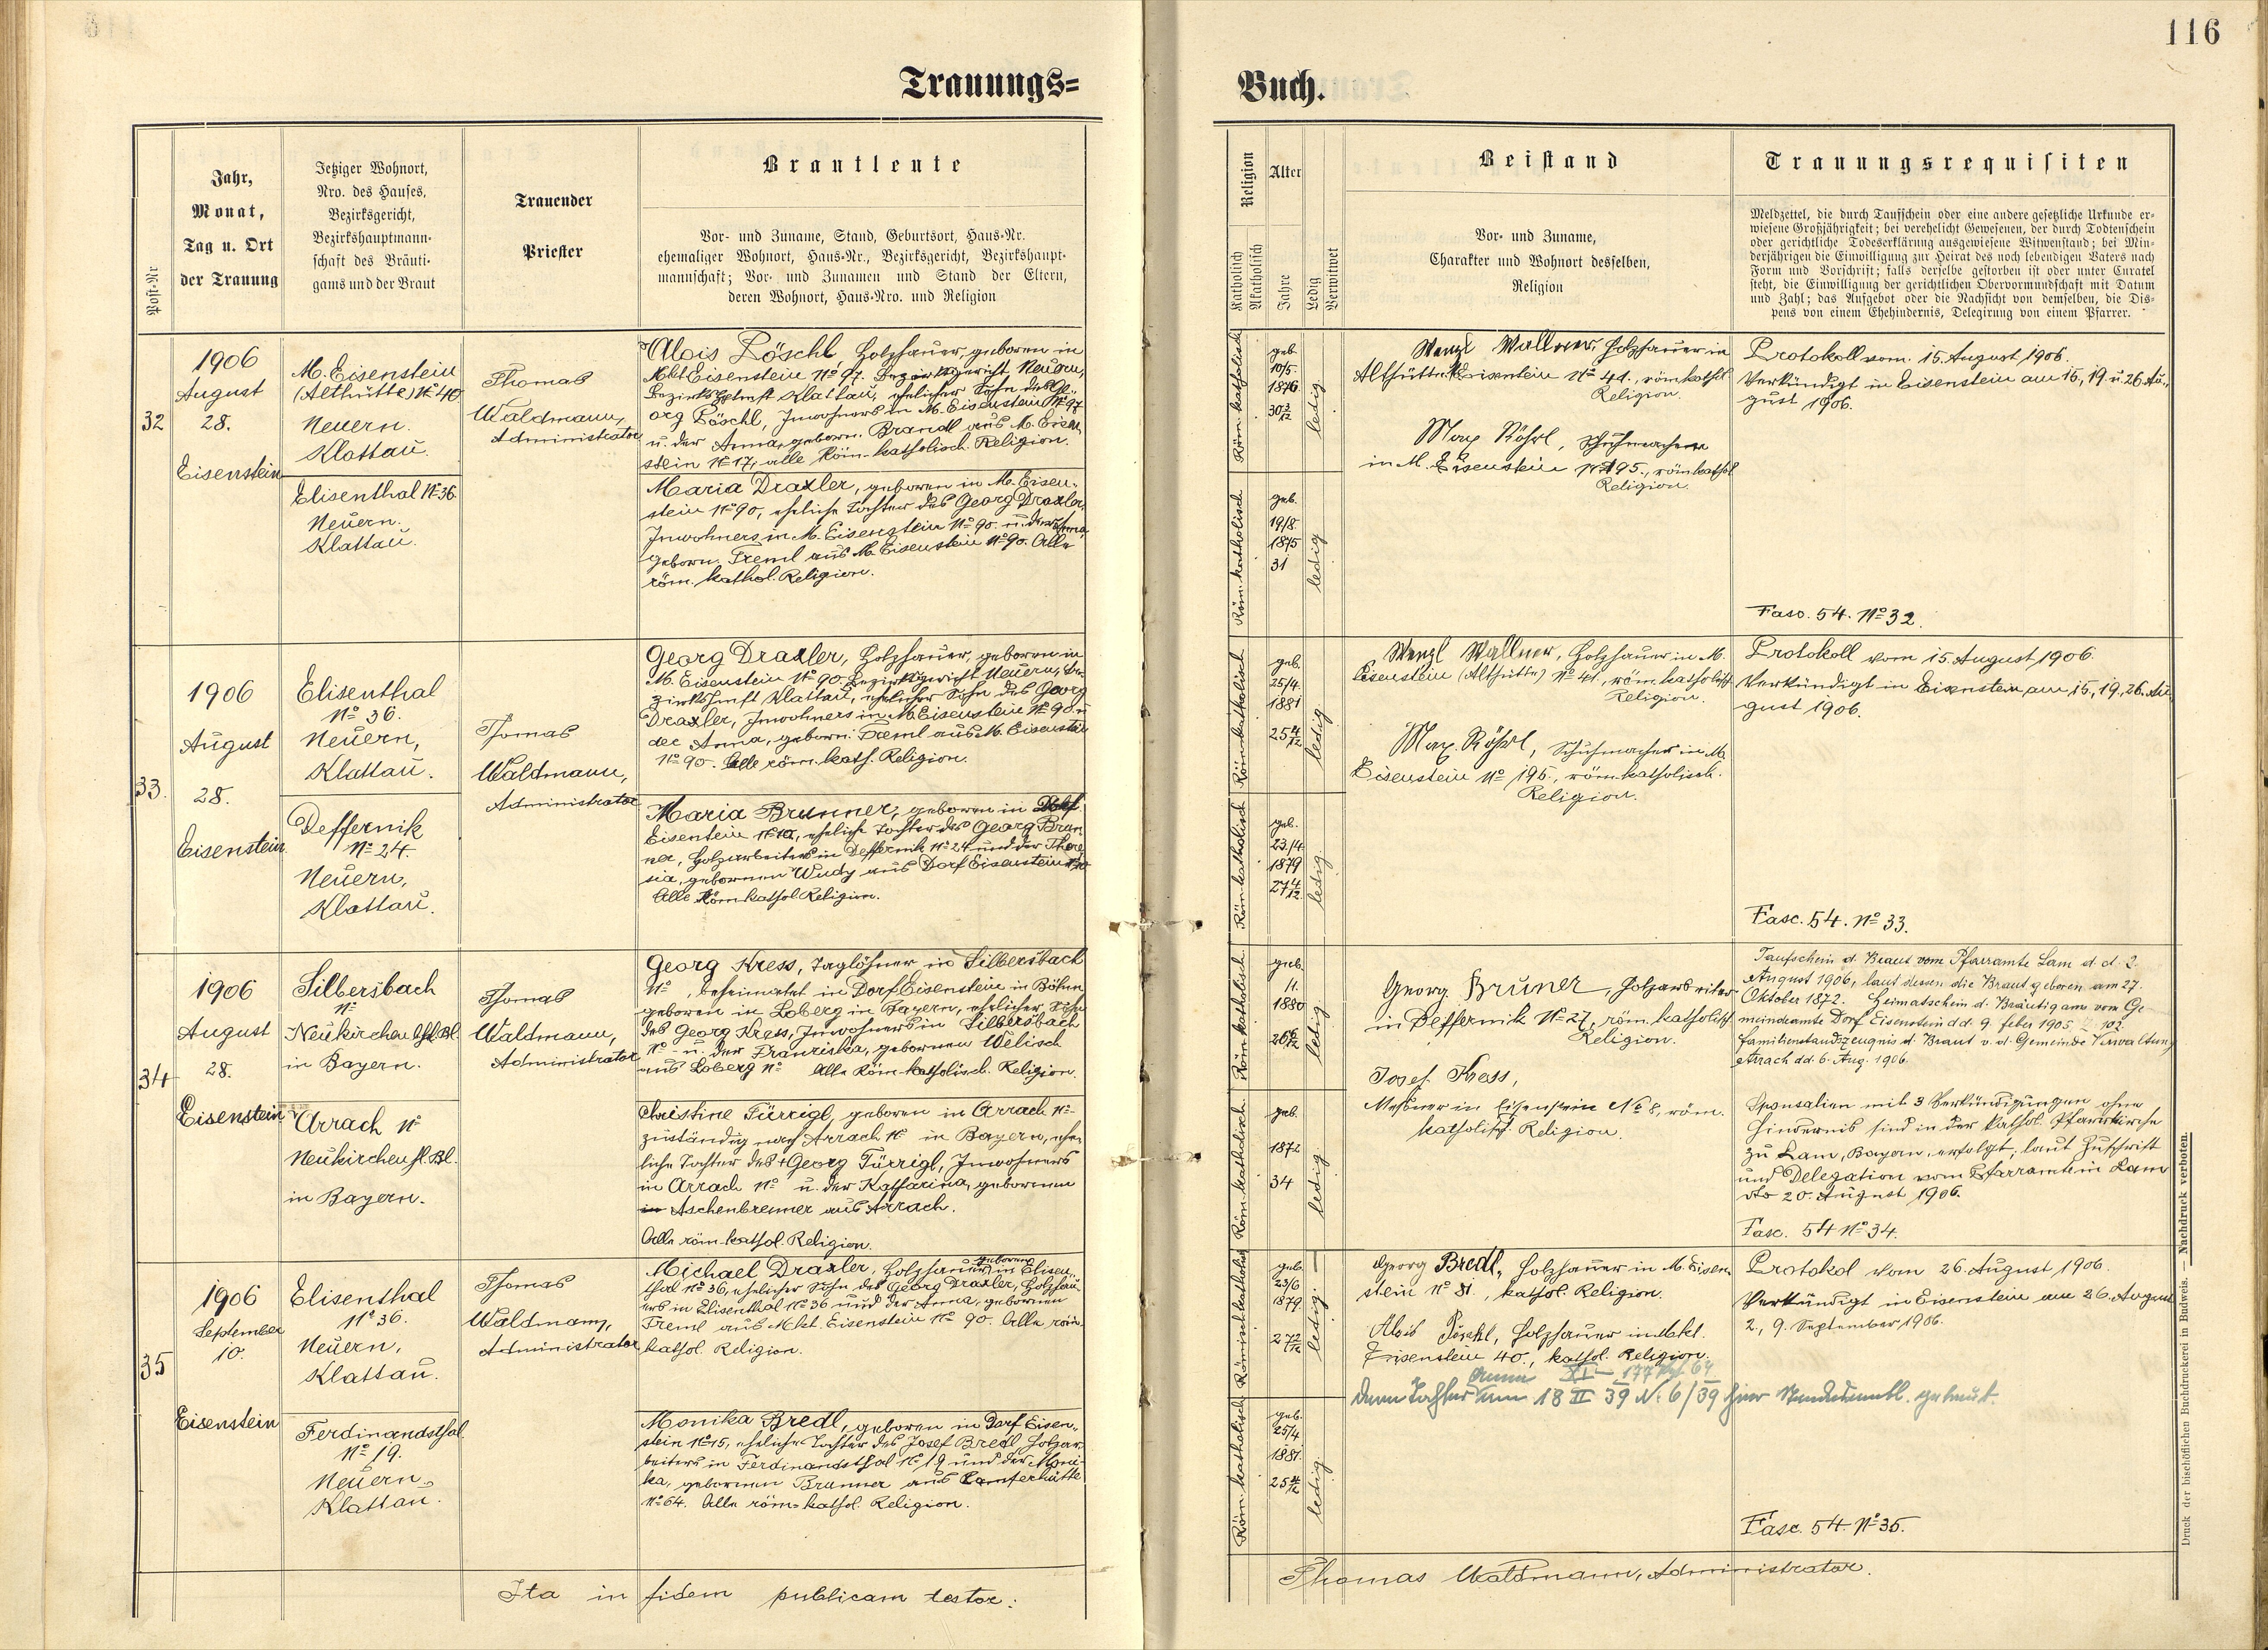 116
Trauungs=
Buch.
Post-Nr
Jahr,
Monat,
Tag u. Ort
der Trauung
Jetziger Wohnort,
Nro. des Hauses,
Bezirksgericht,
Bezirkshauptmann-
schaft des Bräuti-
gams und der Braut
Trauender
Priester
Brautleute
Vor- und Zuname, Stand, Geburtsort, Haus-Nr.
ehemaliger Wohnort, Haus-Nr., Bezirksgericht, Bezirkshaupt-
mannschaft; Vor- und Zunamen und Stand der Eltern,
deren Wohnort, Haus-Nro. und Religion
Religion
Katholisch
Akatholisch
Alter
Jahre
Ledig
Verwitwet
Beistand
Vor- und Zuname,
Charakter und Wohnort desselben,
Religion
Trauungsrequisiten
Meldzettel, die durch Taufschein oder eine andere gesetzliche Urkunde er-
wiesene Großjährigkeit; bei verehelicht Gewesenen, der durch Todtenschein
oder gerichtliche Todeserklärung ausgewiesene Witwenstand; bei Min-
derjährigen die Einwilligung zur Heirat des noch lebendigen Vaters nach
Form und Vorschrift; falls derselbe gestorben ist oder unter Curatel
steht, die Einwilligung der gerichtlichen Obervormundschaft mit Datum
und Zahl; das Aufgebot oder die Nachsicht von demselben, die Dis-
pens von einem Ehehindernis, Delegirung von einem Pfarrer.
32
1906
August
28.
Eisenstein
M. Eisenstein
(Althütte) No 40
Neuern.
Klattau.
Elisenthal No 36.
Neuern.
Klattau.
Thomas
Waldmann,
Administrator
Alois Pöschl, Holzhauer, geboren in
Mkt Eisenstein No 97. Bezirksgericht Neuern,
Bezirkshptmft Klattau, ehelicher Sohn des Ge-
org Pöschl, Inwohners in M. Eisenstein No 97
u. der Anna, geborn. Brandl aus M. Eisen-
stein No 17, alle Röm-katholisch. Religion.
Maria Draxler, geboren in M. Eisen-
stein No 90, eheliche Tochter des Georg Draxler,
Inwohners in M. Eisenstein No 90. u. der Anna,
geborn. Treml aus M. Eisenstein No 90. Alle
röm. kathol. Religion.
Röm. katholisch
geb.
10/5.
1876
30 3/12
ledig
Röm. katholisch
geb.
19/8.
1875
31
ledig
Wenzl Wallner, Holzhauer in
Althütte M. Eisenstein No 41., röm kathol.
Religion.
Max Röhrl, Schuhmacher
in M. Eisenstein No 195., röm kathol.
Religion.
Protokoll vom 15. August 1906.
Verkündigt in Eisenstein am 15, 19 u 26. Au-
gust 1906.
Fasc. 54. No 32.
33.
1906
August
28.
Eisenstein
Elisenthal
No 36.
Neuern,
Klattau.
Deffernik
No 24.
Neuern,
Klattau.
Thomas
Waldmann,
Administrator
Georg Draxler, Holzhauer, geboren in
M. Eisenstein No 90. Bezirksgericht Neuern, Be-
zirkshmft Klattau, ehelicher Sohn des Georg
Draxler, Inwohners in M. Eisenstein No 90 u
der Anna, geborn. Treml aus M. Eisenstein
No 90. Alle röm. kath. Religion.
Maria Brunner, geboren in Dorf
Eisenstein, eheliche Tochter des Georg Brun-
ner, Holzarbeiters in Deffernik No 24 und der There-
sia, gebornen Wudy aus Dorf Eisenstein
Alle Röm kathol. Religion.
Röm katholisch
geb.
25/4.
1881
25 4/12
ledig
Röm. katholisch
geb.
23./4
1879
27 4/12
ledig.
Wenzl Wallner, Holzhauer in M.
Eisenstein (Althütte) No 41., röm. katholisch
Religion.
Max. Röhrl, Schuhmacher in M.
Eisenstein No 195., röm. katholisch.
Religion.
Protokoll vom 15. August 1906.
Verkündigt in Eisenstein am 15., 19., 26. Au-
gust 1906.
Fasc. 54. No 33.
34
1906
August
28.
Eisenstein
Silbersbach
No
Neukirchen
in Bayern.
Arrach No
Neukirchen hl. Bl.
in Bayern.
Thomas
Waldmann,
Administrator
Georg Kress, Taglöhner in Silbersbach
No , beheimatet in Dorf Eisenstein in Böhm
geboren in Loberg in Bayern, ehelicher Sohn
des Georg Kress, Inwohners in Silbersbach
No - u. der Franziska, gebornen Welisch
aus Loberg No Alle Röm-katholisch. Religion.
Christine Türrigl, geboren in Arrach No
zuständig nach Arrach No in Bayern, ehe-
liche Tochter des + Georg Türrigl, Inwohners
in Arrach No u. der Katharina, gebornen
in Aschenbrenner aus Arrach.
Alle röm. kathol. Religion.
Röm katholisch.
geb.
11.
1880
26 6/12
ledig
Röm. katholisch.
geb.
1872
34
ledig
Georg Bruner, Holzarbeiter
in Deffernik No 27, röm. katholisch
Religion.
Josef Kress,
Messner in Eisenstein No 8, röm.
katholisch. Religion.
Taufschein d. Braut vom Pfarramte Lam d. d. 2.
August 1906, laut dessen die Braut geboren am 27.
Oktober 1872. Heimatschein d. Bräutigams vom Ge-
meindeamte Dorf Eisenstein dd. 9. Feber 1905 Z. 102.
Familienstandszeugnis d. Braut v. d. Gemeinde Verwaltung
Arrach dd. 6. Aug. 1906.
Sponsalien mit 3 Verkündigungen ohne
Hindernis sind in der kathol. Pfarrkirche
zu Lam, Bayern, erfolgt, laut Zuschrift
und Delegation vom Pfarramte in Lam
dto 20. August 1906.
Fasc. 54 No 34.
35
1906
September
10.
Eisenstein
Elisenthal
No 36.
Neuern,
Klattau.
Ferdinandsthal
No 19.
Neuern
Klattau.
Thomas
Waldmann,
Administrator
Michael Draxler, Holzhauer, geboren in Elisen-
thal No 36, ehelicher Sohn des Georg Draxler, Holzhau-
ers in Elisenthal No 36 und der Anna, gebornen
Treml aus Mkt. Eisenstein No 90. Alle röm.
kathol. Religion.
Monika Bredl, geboren in Dorf Eisen-
stein No 15, eheliche Tochter des Josef Bredl, Holzar-
beiters in Ferdinandsthal No 19 und der Moni-
ka, gebornen Brunner aus
No 64. Alle röm-kathol. Religion.
Römisch katholisch
geb.
23/6
1879.
27 2/12
ledig
Röm. katholisch
geb.
25/4
1881.
25 4/12
ledig
Georg Bredl, Holzhauer in M. Eisen-
stein No 81., kathol. Religion.
Alois Pöschl, Holzhauer in Mkt.
Eisenstein 40., kathol. Religion.
Anna XI - 177
Tochter am 18 II 39 N: 6/39 hier getraut.
Protokol vom 26. August 1906.
Verkündigt in Eisenstein am 26. August
2., 9. September 1906.
Fasc. 54. No 35.
Ita in fidem publicam testor:
Thomas Waldmann, Administrator.
Druck der bischöflichen Buchdruckerei in Budweis. — Nachdruck verboten.